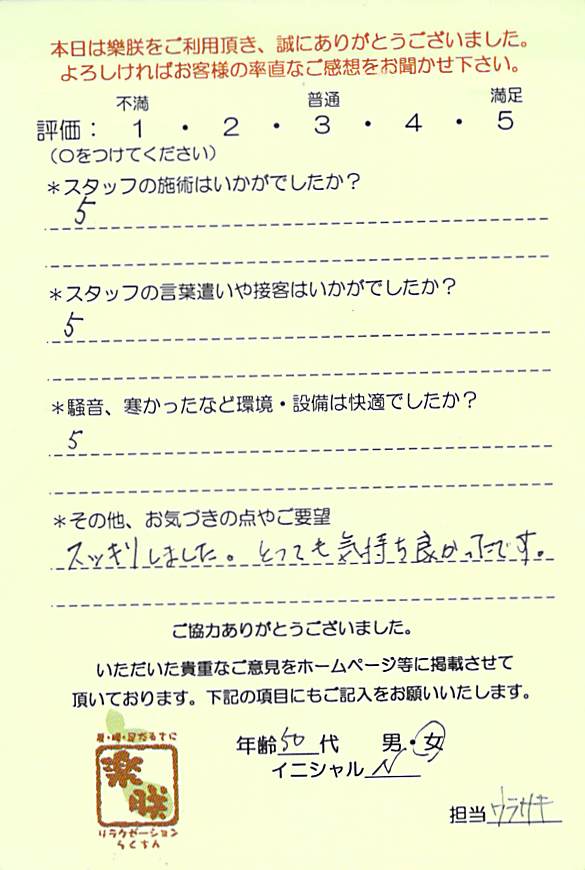 本日は樂朕をご利用頂き、誠にありがとうございました。
よろしければお客様の率直なご感想をお聞かせ下さい。
不満 普通 満足
評価： 1 ・ 2 ・ 3 ・ 4 ・ 5
（○をつけてください）
＊スタッフの施術はいかがでしたか？
5
＊スタッフの言葉遣いや接客はいかがでしたか？
5
＊騒音、寒かったなど環境・設備は快適でしたか？
5
＊その他、お気づきの点やご要望
スッキリしました。とっても気持ち良かったです。
ご協力ありがとうございました。
いただいた貴重なご意見をホームページ等に掲載させて
頂いております。下記の項目にもご記入をお願いいたします。
年齢50代 男・女
イニシャル N
樂
朕
リラクゼーション
らくちん
担当 ウラサキ